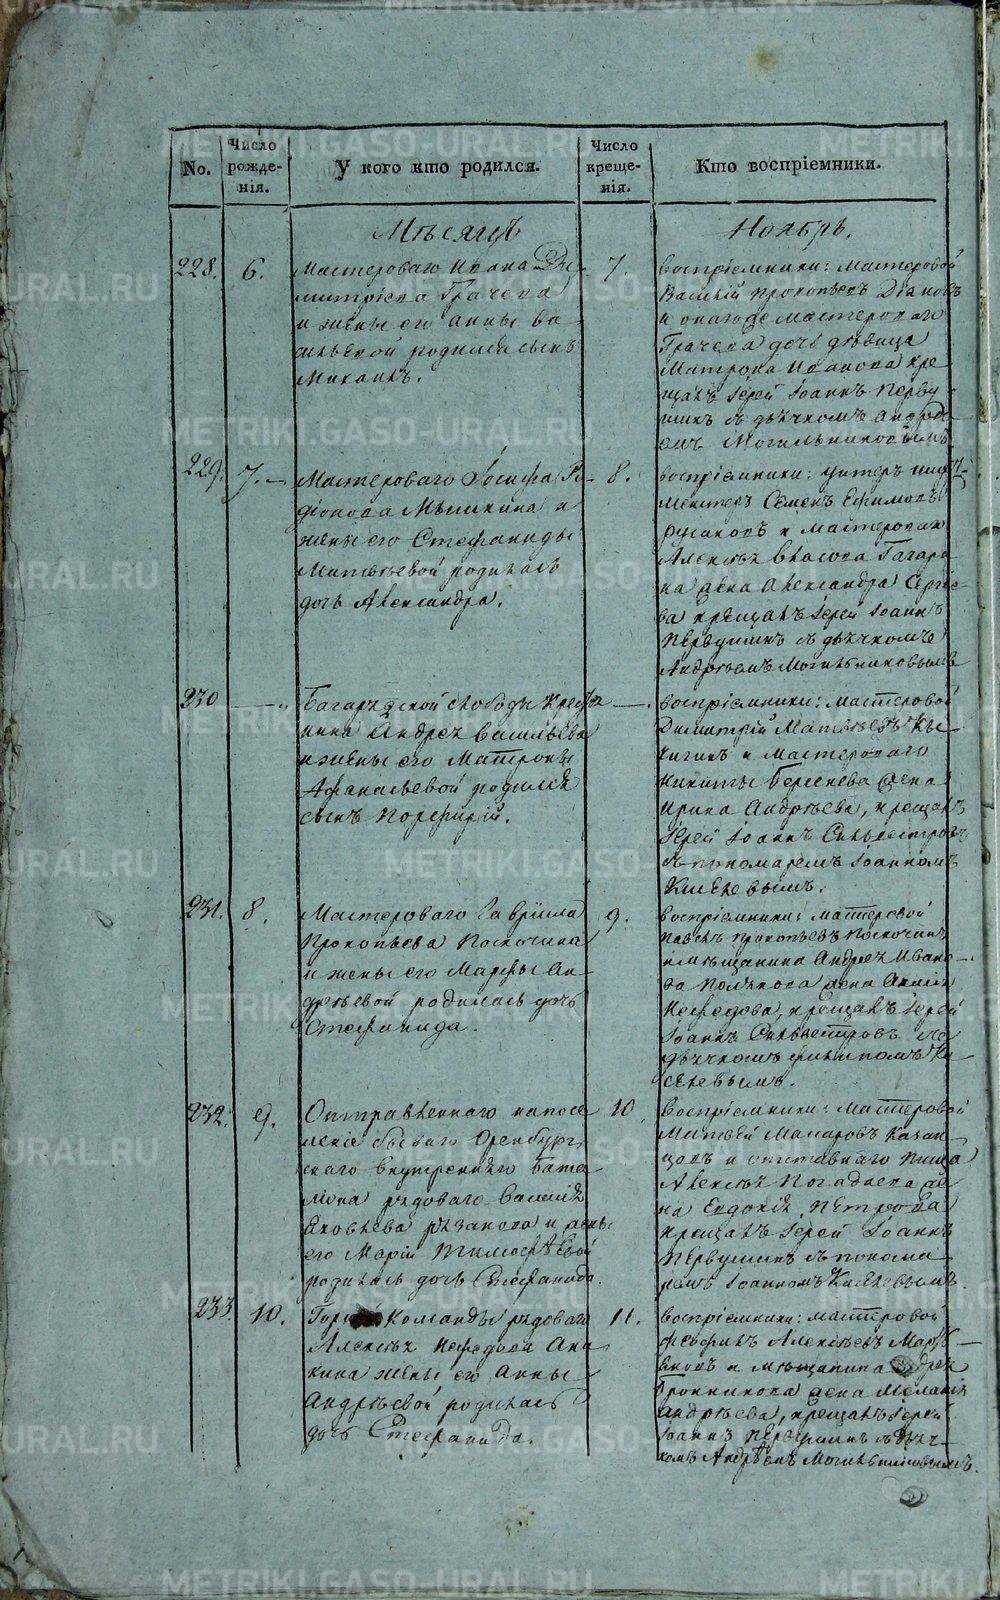 No.
Число рожде-нія.
У кого кто родился.
Число креще-нія.
Кто воспріемники.
Мѣсяцъ
Ноябрь.
228.
6.
Мастероваго Ивана Ди
митріева Грачева
и жены его Анны Ва
сильевой родился сынъ
Михаилъ.
7.
воспріемники: мастеровой
Василій Прокопьевъ
и онагоже мастероваго
Грачева дочь дѣвица
Матрона Иванова кре
щалъ Іерей Іоаннъ Перву
шинъ съ дьячкомъ Андре
емъ Могильниковымъ
229.
7.
Мастероваго Іосифа Ро
діонова Мѣшкина и
жены его Стефаниды
Матвѣевой родилась
дочь Александра.
8.
воспріемники: унтеръ шихт
мейстеръ Семенъ Ефимовъ
Русановъ и мастероваго
Алексѣя Власова Гагари
на жена Александра Сергѣе
ва крещалъ Іерей Іоаннъ
Первушинъ съ дьячкомъ
Андреемъ Могильниковымъ
230
Багаряцкой слободы крестья
нина Андрея Васильева
и жены его Матроны
Афанасьевой родился
сынъ Порфирій.
воспріемники: мастеровой
Димитрій Матвѣевъ
и мастероваго
Никиты Береснева жена
Ирина Андреева, крещалъ
Іерей Іоаннъ Сильвестровъ
съ пономаремъ Іоанномъ
Киселевымъ.
231.
8.
Мастероваго Гавріила
Прокопьева Поскочина
и жены его Марфы Ан
дреевой родилась дочь
Стефанида.
9.
воспріемники: мастеровой
Павелъ Прокопьевъ Поскочинъ
и мѣщанина Андрея Ивано
ва Полякова жена
Нефедова, крещалъ Іерей
Іоаннъ Сильвестровъ съ
дьячкомъ Филипомъ Ки
селевымъ.
232.
9.
Отправленнаго на посе
леніе бывшаго Оренбург
скаго внутренняго бата
ліона рядоваго Василія
Яковлева Рязанова и жены
его Маріи Тимофѣевой
родилась дочь Стефанида.
10
воспріемники: мастеровой
Матвѣй Макаровъ Казан
цовъ и отставнаго писца
Алексѣя Погадаева же
на Евдокія Петрова
крещалъ Іерей Іоаннъ
Первушинъ съ понома
ремъ Іоанномъ Киселевымъ.
233.
10.
Горной команды рядоваго
Алексѣя Нефедова Ана
кина жены его Анны
Андреевой родилась
дочь Стефанида.
11.
воспріемники: мастеровой
Феофилъ Алексѣевъ
и мѣщанина Андрея
Бронникова жена Меланія
Андреева, крещалъ Іерей
Іоаннъ Первушинъ съ дьяч
комъ Андреемъ Могильниковымъ.
METRIKI.GASO-URAL.RU